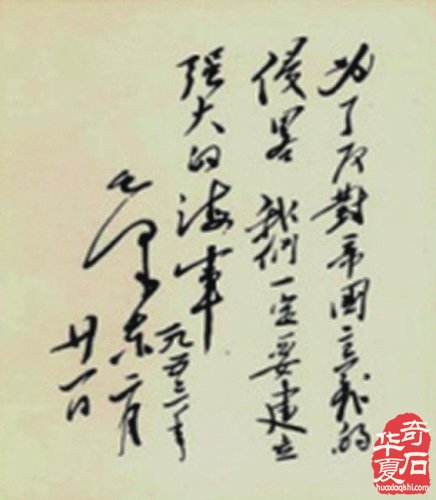 为了反對帝國主义的
侵畧 我們一定要建立
强大的海軍
一九五三年
毛澤东 二月
廿一日
华夏
奇石
huaxiaqishi.com